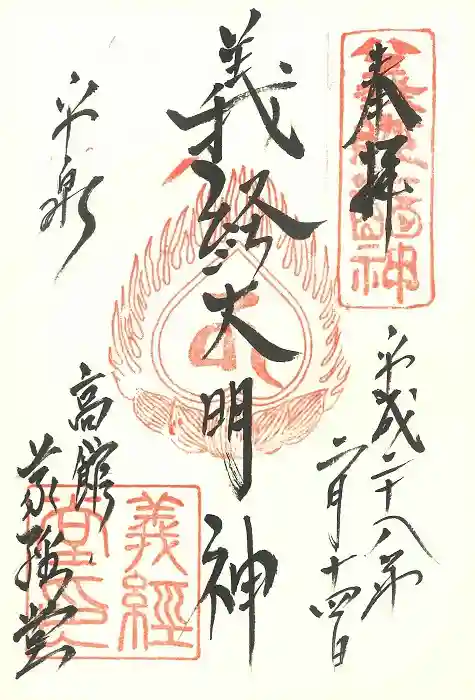 奉拝
平成二十八年
二月十四日
義経大明神
平泉
高館
義経堂
義經
堂印